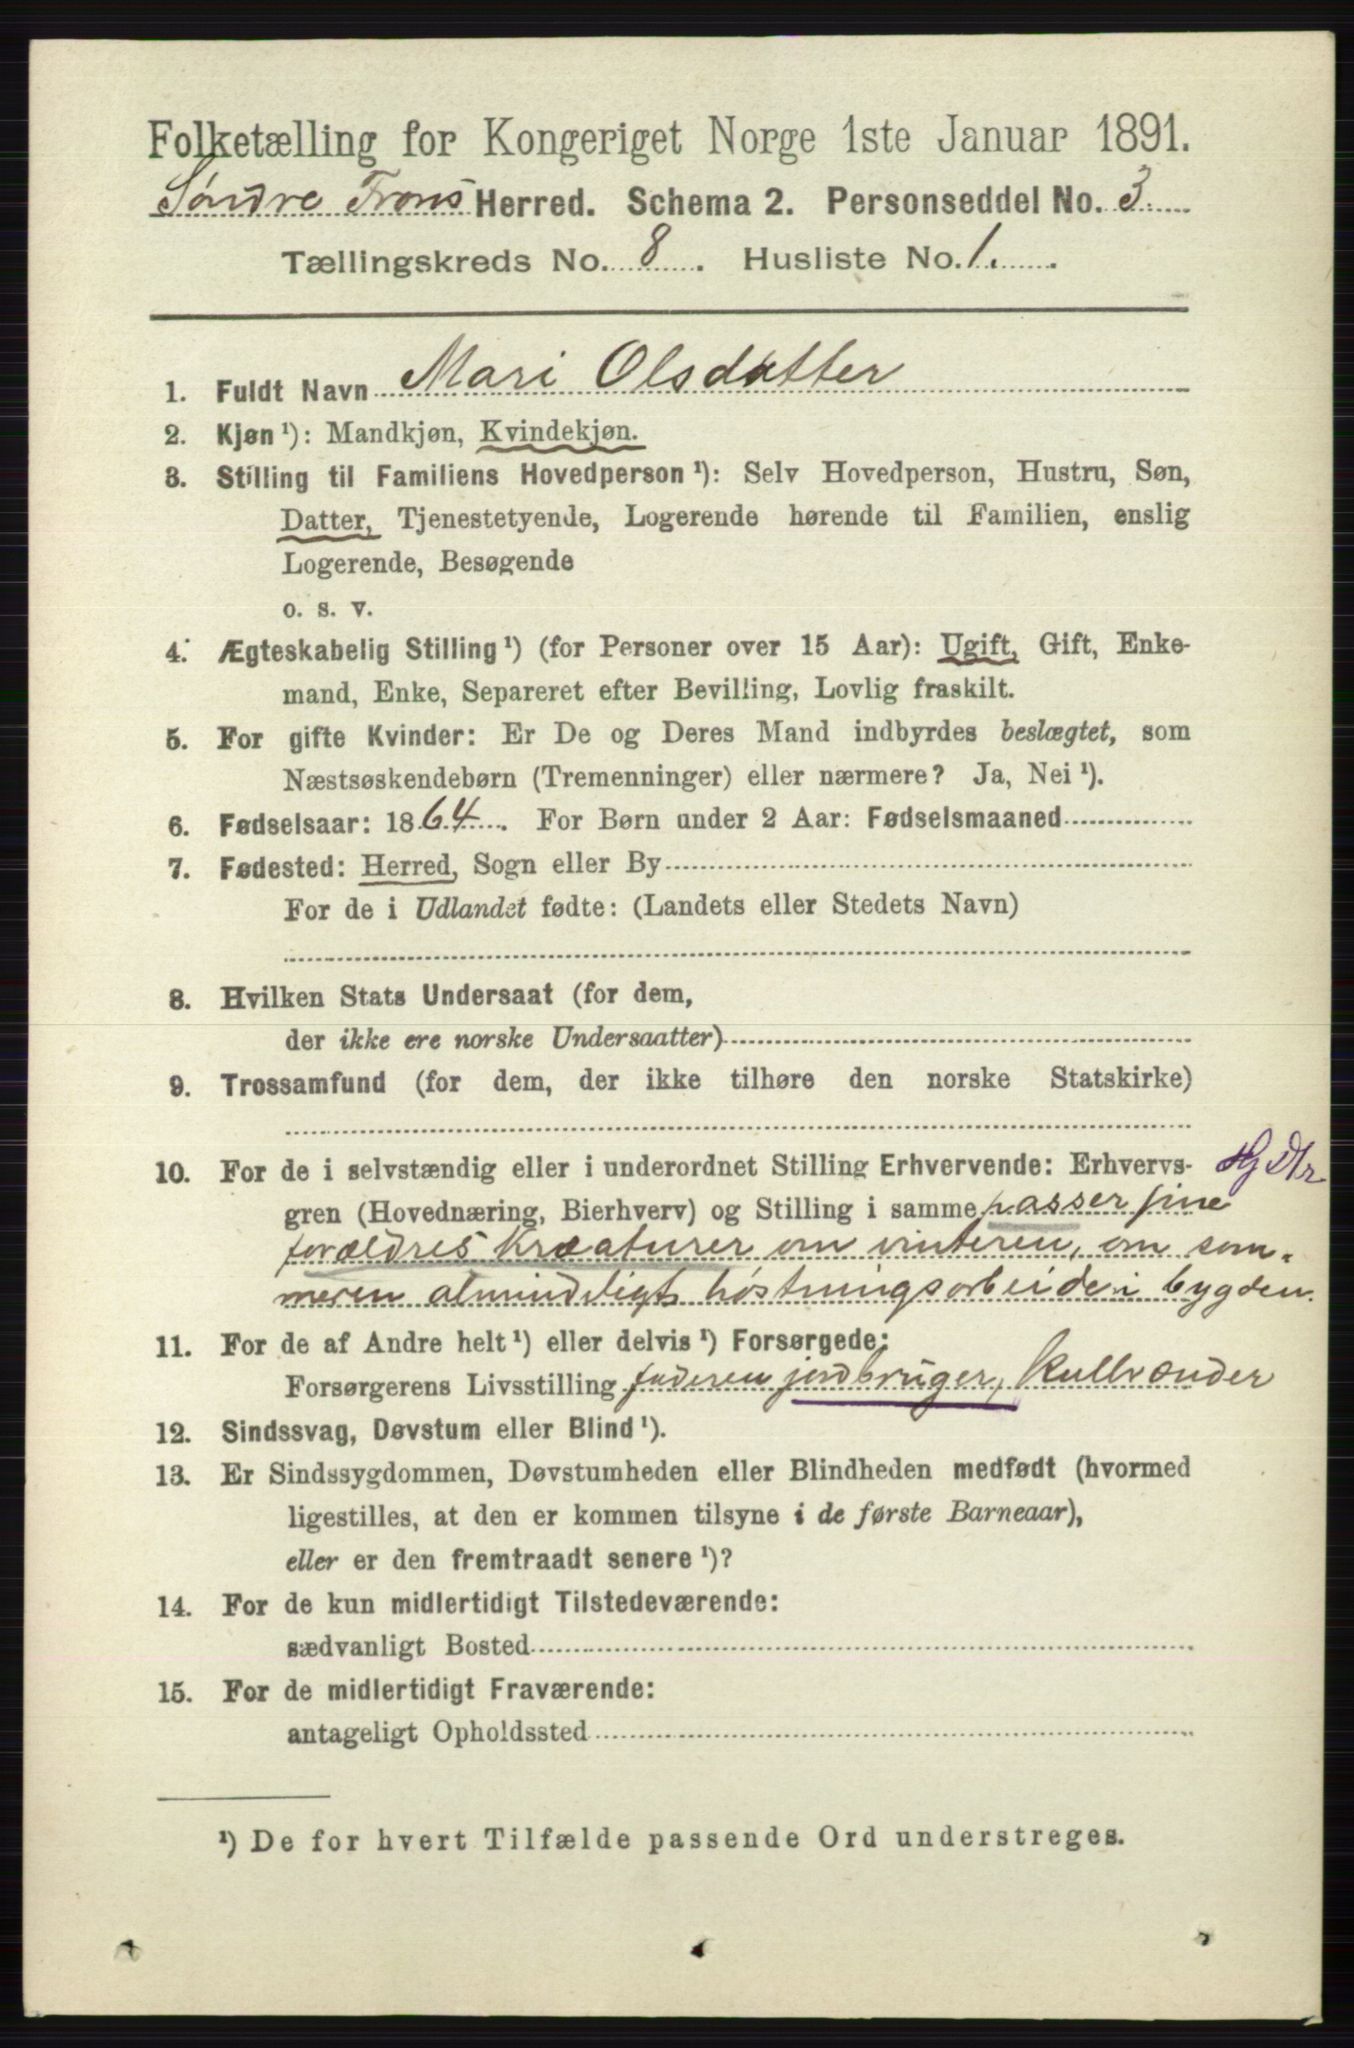 Folketælling for Kongeriget Norge 1ste Januar 1891.
Søndre Frons Herred. Schema 2. Personseddel No. 3
Tællingskreds No. 8. Husliste No. 1.
1. Fuldt Navn Mari Olsdatter
2. Kjøn¹): Mandkjøn, Kvindekjøn.
3. Stilling til Familiens Hovedperson¹): Selv Hovedperson, Hustru, Søn,
Datter, Tjenestetyende, Logerende hørende til Familien, enslig
Logerende, Besøgende
o. s. v.
4. Ægteskabelig Stilling¹) (for Personer over 15 Aar): Ugift, Gift, Enke-
mand, Enke, Separeret efter Bevilling, Lovlig fraskilt.
5. For gifte Kvinder: Er De og Deres Mand indbyrdes beslægtet, som
Næstsøskendebørn (Tremenninger) eller nærmere? Ja, Nei¹).
6. Fødselsaar: 1864. For Børn under 2 Aar: Fødselsmaaned
7. Fødested: Herred, Sogn eller By
For de i Udlandet fødte: (Landets eller Stedets Navn)
8. Hvilken Stats Undersaat (for dem,
der ikke ere norske Undersaatter)
9. Trossamfund (for dem, der ikke tilhøre den norske Statskirke)
10. For de i selvstændig eller i underordnet Stilling Erhvervende: Erhvervs-
gren (Hovednæring, Bierhverv) og Stilling i samme passer sine
forældres Kræaturer om vinteren, om som-
meren almindeligt høstningsarbeide i bygden.
11. For de af Andre helt¹) eller delvis¹) Forsørgede:
Forsørgerens Livsstilling faderen jordbruger,
12. Sindssvag, Døvstum eller Blind¹).
13. Er Sindssygdommen, Døvstumheden eller Blindheden medfødt (hvormed
ligestilles, at den er kommen tilsyne i de første Barneaar),
eller er den fremtraadt senere¹)?
14. For de kun midlertidigt Tilstedeværende:
sædvanligt Bosted
15. For de midlertidigt Fraværende:
antageligt Opholdssted
¹) De for hvert Tilfælde passende Ord understreges.